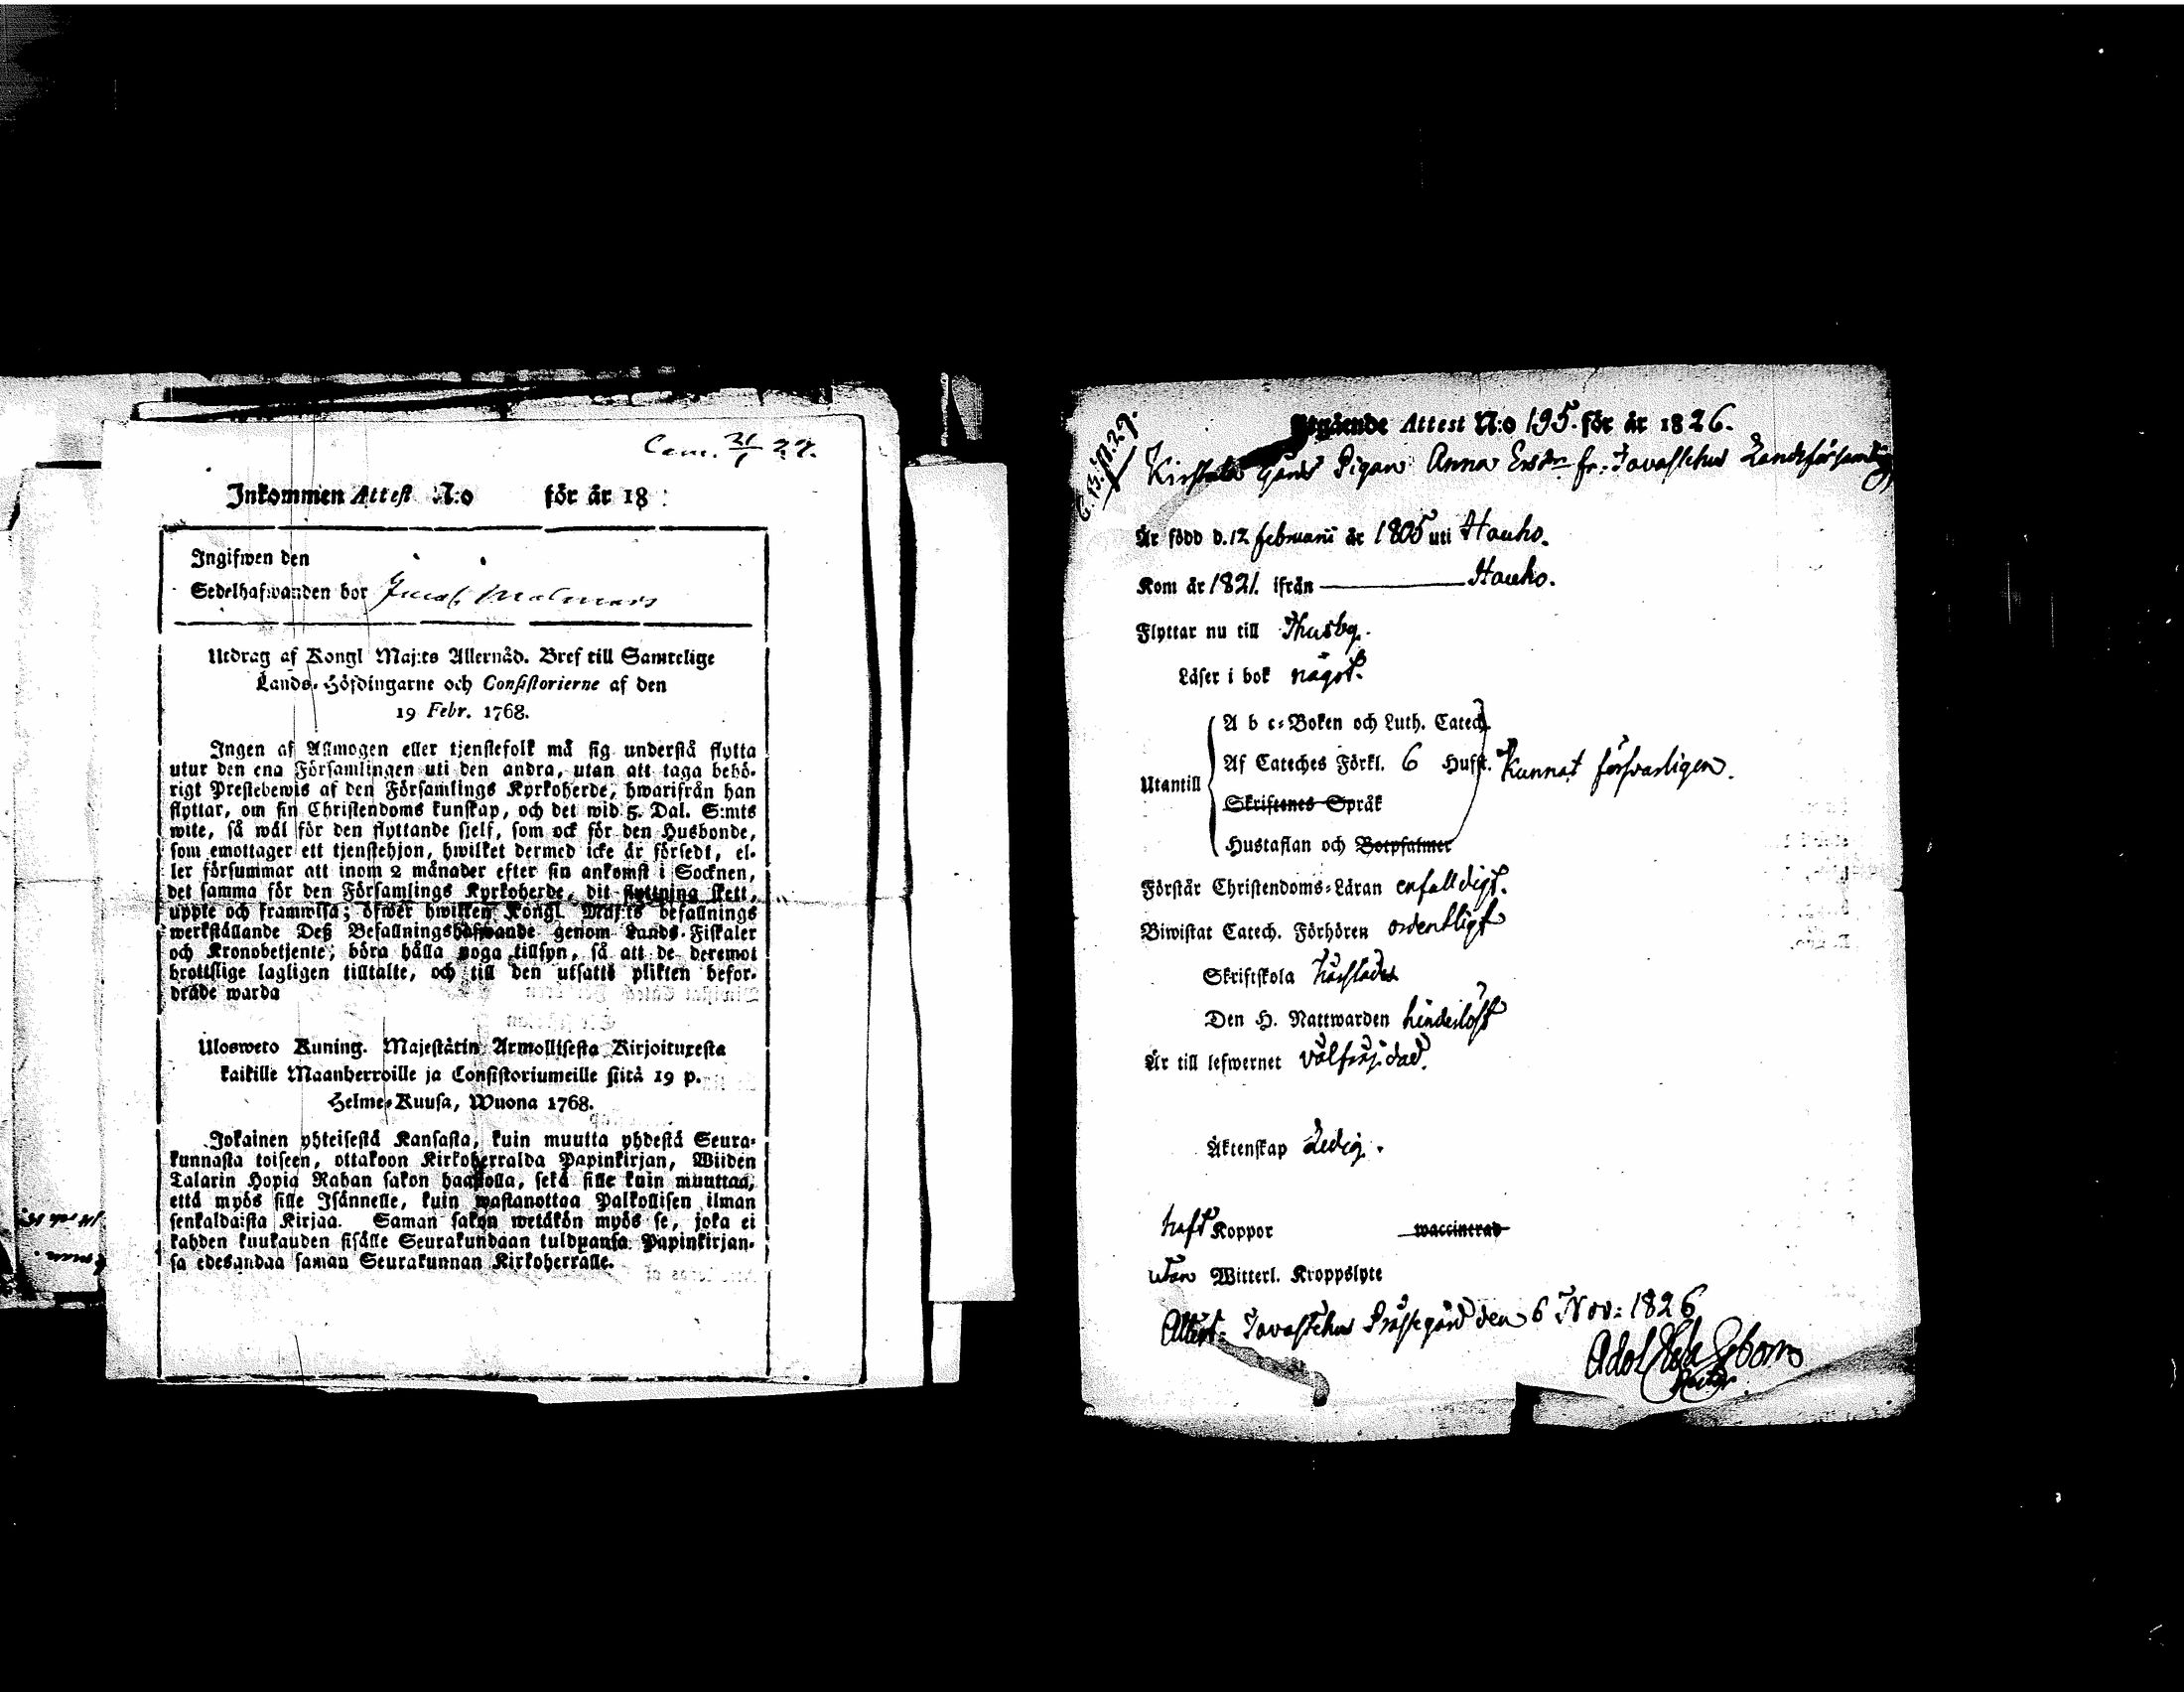 Com. 31/1 27.
Inkommen Attest N:o för år 18 :
Ingifwen den
Sedelhafwanden bor Jacob Malmars
Utdrag af Kongl Maj:ts Allernåd. Bref till Samtelige
Lands-Höfdingarne och Consistorierne af den
19 Febr. 1768.
Ingen af Allmogen eller tjenstefolk må sig understå flytta
utur den ena Församlingen uti den andra, utan att taga behö-
rigt Prestebewis af den Församlings Kyrkoherde, hwarifrån han
flyttar, om sin Christendoms kunskap, och det wid 5. Dal. S:mts
wite, så wäl för den flyttande sielf, som ock för den Husbonde,
som emottager ett tjenstehjon, hwilket dermed icke är försedt, el-
ler försummar att inom 2 månader efter sin ankomst i Socknen,
det samma för den Församlings Kyrkoherde, dit flyttning skett,
uppte och framwisa; öfwer hwilken Kongl Maj:ts befallnings
werkställande Deß Befallningshafwande genom Lands-Fiskaler
och Kronobetjente, böra hålla noga tillsyn, så att de deremot
brottslige lagligen tilltalte, och till den utsatte plikten befor-
drade warda
Ulosweto Kuning. Majestätin Armollisesta Kirjoituxesta
kaikille Maanherroille ja Consistoriumeille siitä 19 p.
Helme-Kuusa, Wuona 1768.
Jokainen yhteisestä Kansasta, kuin muutta yhdestä Seura-
kunnasta toiseen, ottakoon Kirkoherralda Papinkirjan, Wiiden
Talarin Hopia Rahan sakon haastolla, sekä sille kuin muuttaa,
että myös sille Isännelle, kuin wastanottaa Palkollisen ilman
senkaldaista Kirjaa. Saman sakon wetäkön myös se, joka ei
kahden kuukauden sisälle Seurakundaan tulduansa Papinkirjan-
sa edesandaa saman Seurakunnan Kirkoherralle.
Utgående Attest N:o 195. för år 1826.
Kirstula Gårds Pigan Anna Ersdr fr. Tavastehus Landsförsamling
Är född d. 12 februarii år 1805 uti Hauho.
Kom år 1821. ifrån Hauho.
Flyttar nu till Thusby.
Läser i bok något.
A b c-Boken och Luth. Catech.
Af Cateches Förkl. 6 Hufst. Kunnat försvarligen.
Utantill
Skriftenes Språk
Hustaflan och Botpsalmer
Förstår Christendoms-Läran enfalldigt.
Biwistat Catech. Förhören ordentligt
Skriftskola
Den H. Nattwarden hinderlöst
Är till lefwernet välfrejdad.
Äktenskap Ledig.
haft Koppor waccinerad
utan Witterl. Kroppslyte
Attest. Tavastehus Prästegård den 6 Nov: 1826